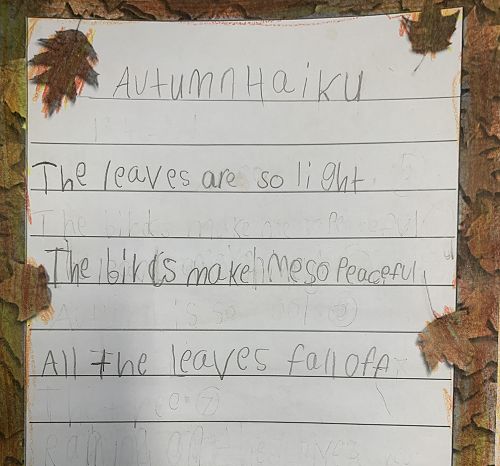 Autumn Haiku
The leaves are so light
The birds make me so Peaceful
All the leaves fall off